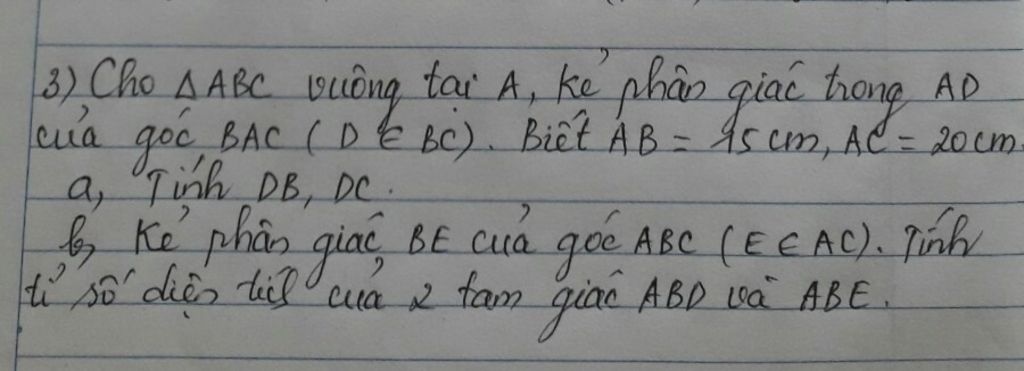 3) Cho △ABC vuông tại A, kẻ phân giác trong AD
của góc BAC (D ∈ BC). Biết AB = 15 cm, AC = 20 cm.
a, Tính DB, DC.
b, Kẻ phân giác BE của góc ABC (E ∈ AC). Tính
tỉ số diện tích của 2 tam giác ABD và ABE.